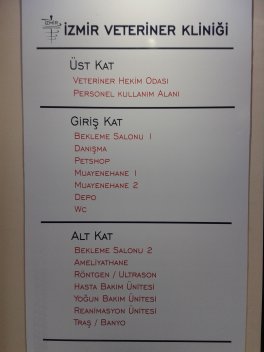 İZMİR
İZMİR VETERİNER KLİNİĞİ
ÜST KAT
VETERİNER HEKİM ODASI
PERSONEL KULLANIM ALANI
GİRİŞ KAT
BEKLEME SALONU 1
DANIŞMA
PETSHOP
MUAYENEHANE 1
MUAYENEHANE 2
DEPO
WC
ALT KAT
BEKLEME SALONU 2
AMELİYATHANE
RÖNTGEN / ULTRASON
HASTA BAKIM ÜNİTESİ
YOĞUN BAKIM ÜNİTESİ
REANİMASYON ÜNİTESİ
TRAŞ / BANYO